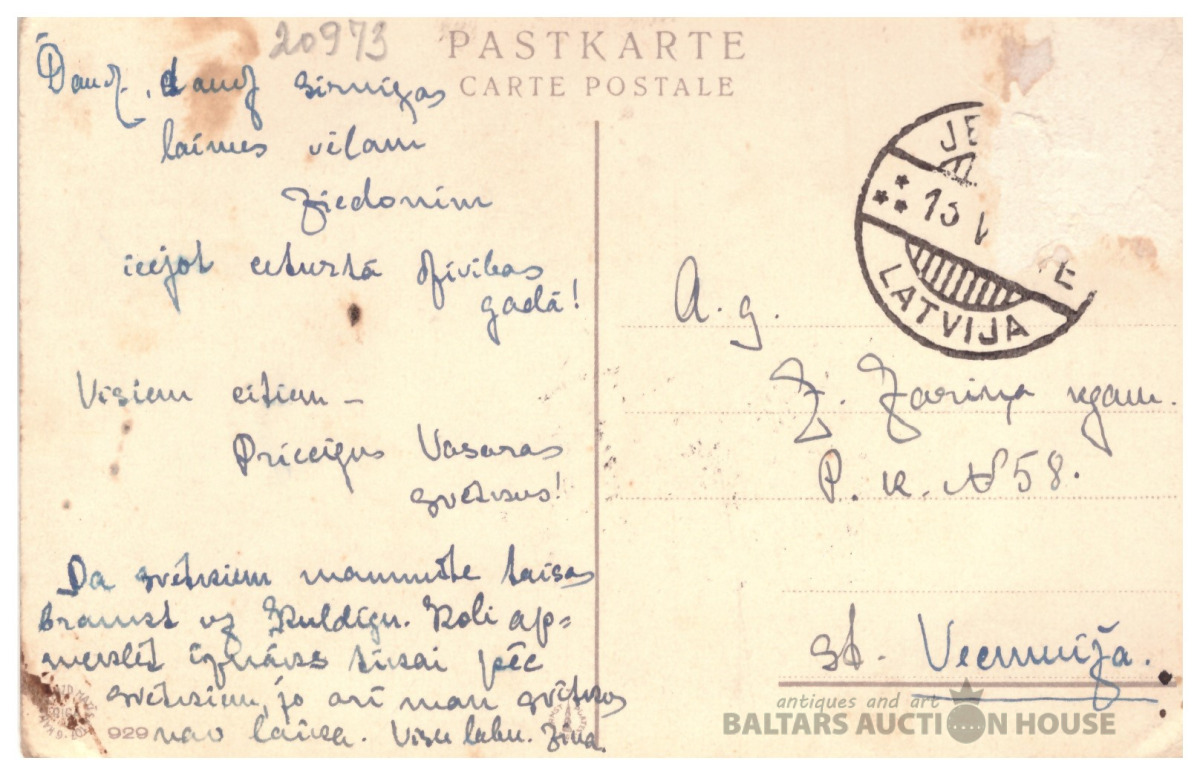 20973
PASTKARTE
CARTE POSTALE
Daudz, daudz sirnīgas
laimes vīlam
Ziedonim
ieejot ceturtā dzīvības
gadā!
Visiem citiem –
Priecīgus Vasaras
svētkus!
Pa svētkiem mammīte taisas
braukt uz Kuldīgu. Roli ap=
meklēt iznāks tikai pēc
svētkiem, jo arī man svētkos
nav laika. Visu labu. Zina.
929
JE
15 V
E
LATVIJA
A. g.
Z. Zariņa kgam.
P. k. № 58.
st. Vecmuiža.
antiques and art
BALTARS AUCTION HOUSE